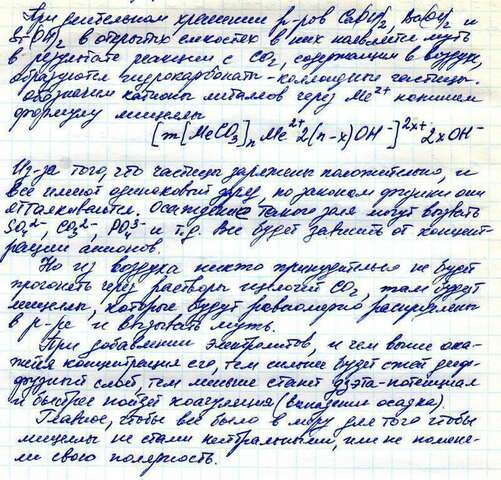 При длительном хранении р-ров Ca(OH)₂, Ba(OH)₂ и
Sr(OH)₂ в открытых емкостях в них появляется муть
в результате реакции с CO₂, содержащим в воздухе,
образуются гидрокарбонаты - коллоидные частицы.
Обозначим катионы металлов через Me²⁺ напишем
формулу мицеллы
[m[MeCO₃]ₙMe²⁺2(n-x)OH⁻]²ˣ⁺2xOH⁻
Из-за того, что частицы заряжены положительно, и
все имеют одинаковый заряд, по законам физики они
отталкиваются. Осаждение такого золя могут вызвать
SO₄²⁻, CO₃²⁻, PO₄³⁻ и т.д. Все будет зависить от концент-
рации анионов.
Но из воздуха никто принудительно не будет
прогонять через растворы щелочей CO₂, там будут
мицеллы, которые будут равномерно распределены
в р-ре и вызывать муть.
При добавлении электролитов, и чем выше ока-
жется концентрация его, тем сильнее будет сжат диф-
фузный слой, тем меньше станет дзэта-потенциал
и быстрее пойдет коагуляция (выпадение осадка).
Главное, чтобы все было в меру для того чтобы
мицеллы не стали нейтральными, или не поменя-
ли свою полярность.